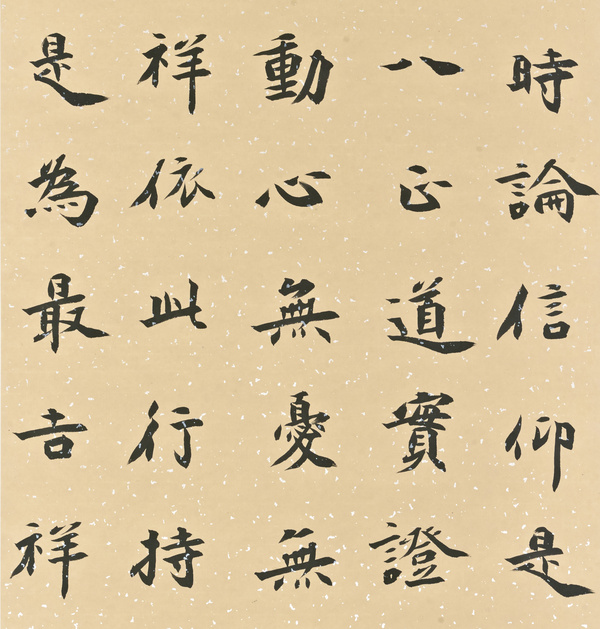 時論信仰是
八正道實證
動心無憂無
祥依此行持
是為最吉祥